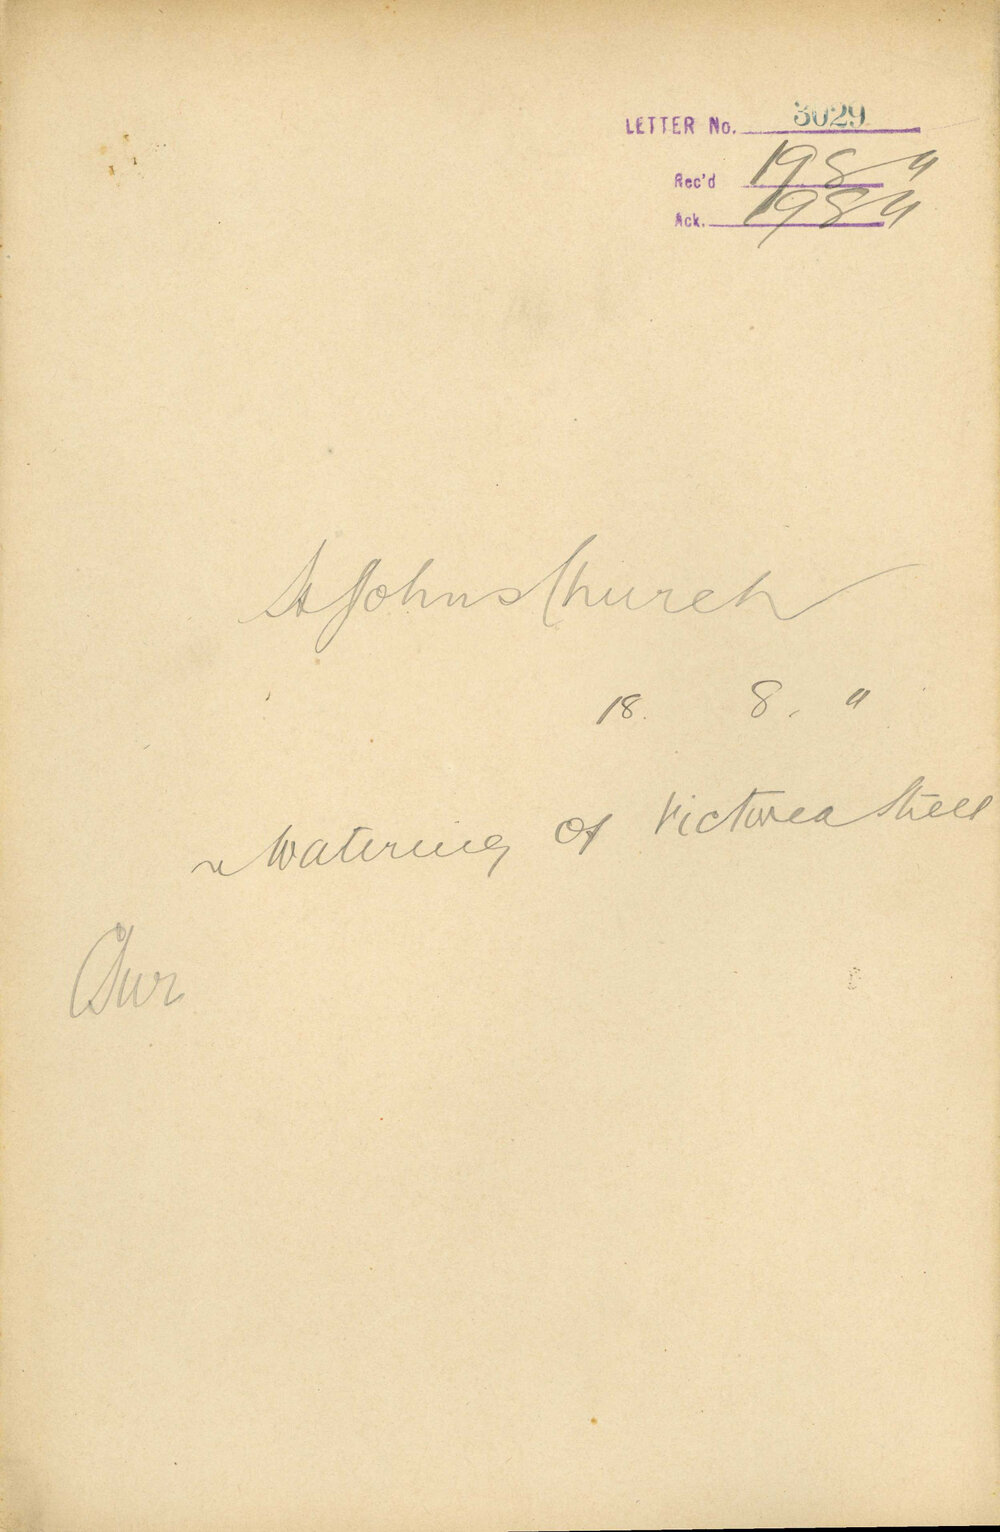 LETTER No. 3029
Rec'd 19 8 11
Ack. 19 8 11
St Johns Church
18. 8. 11
Watering of Victoria Street